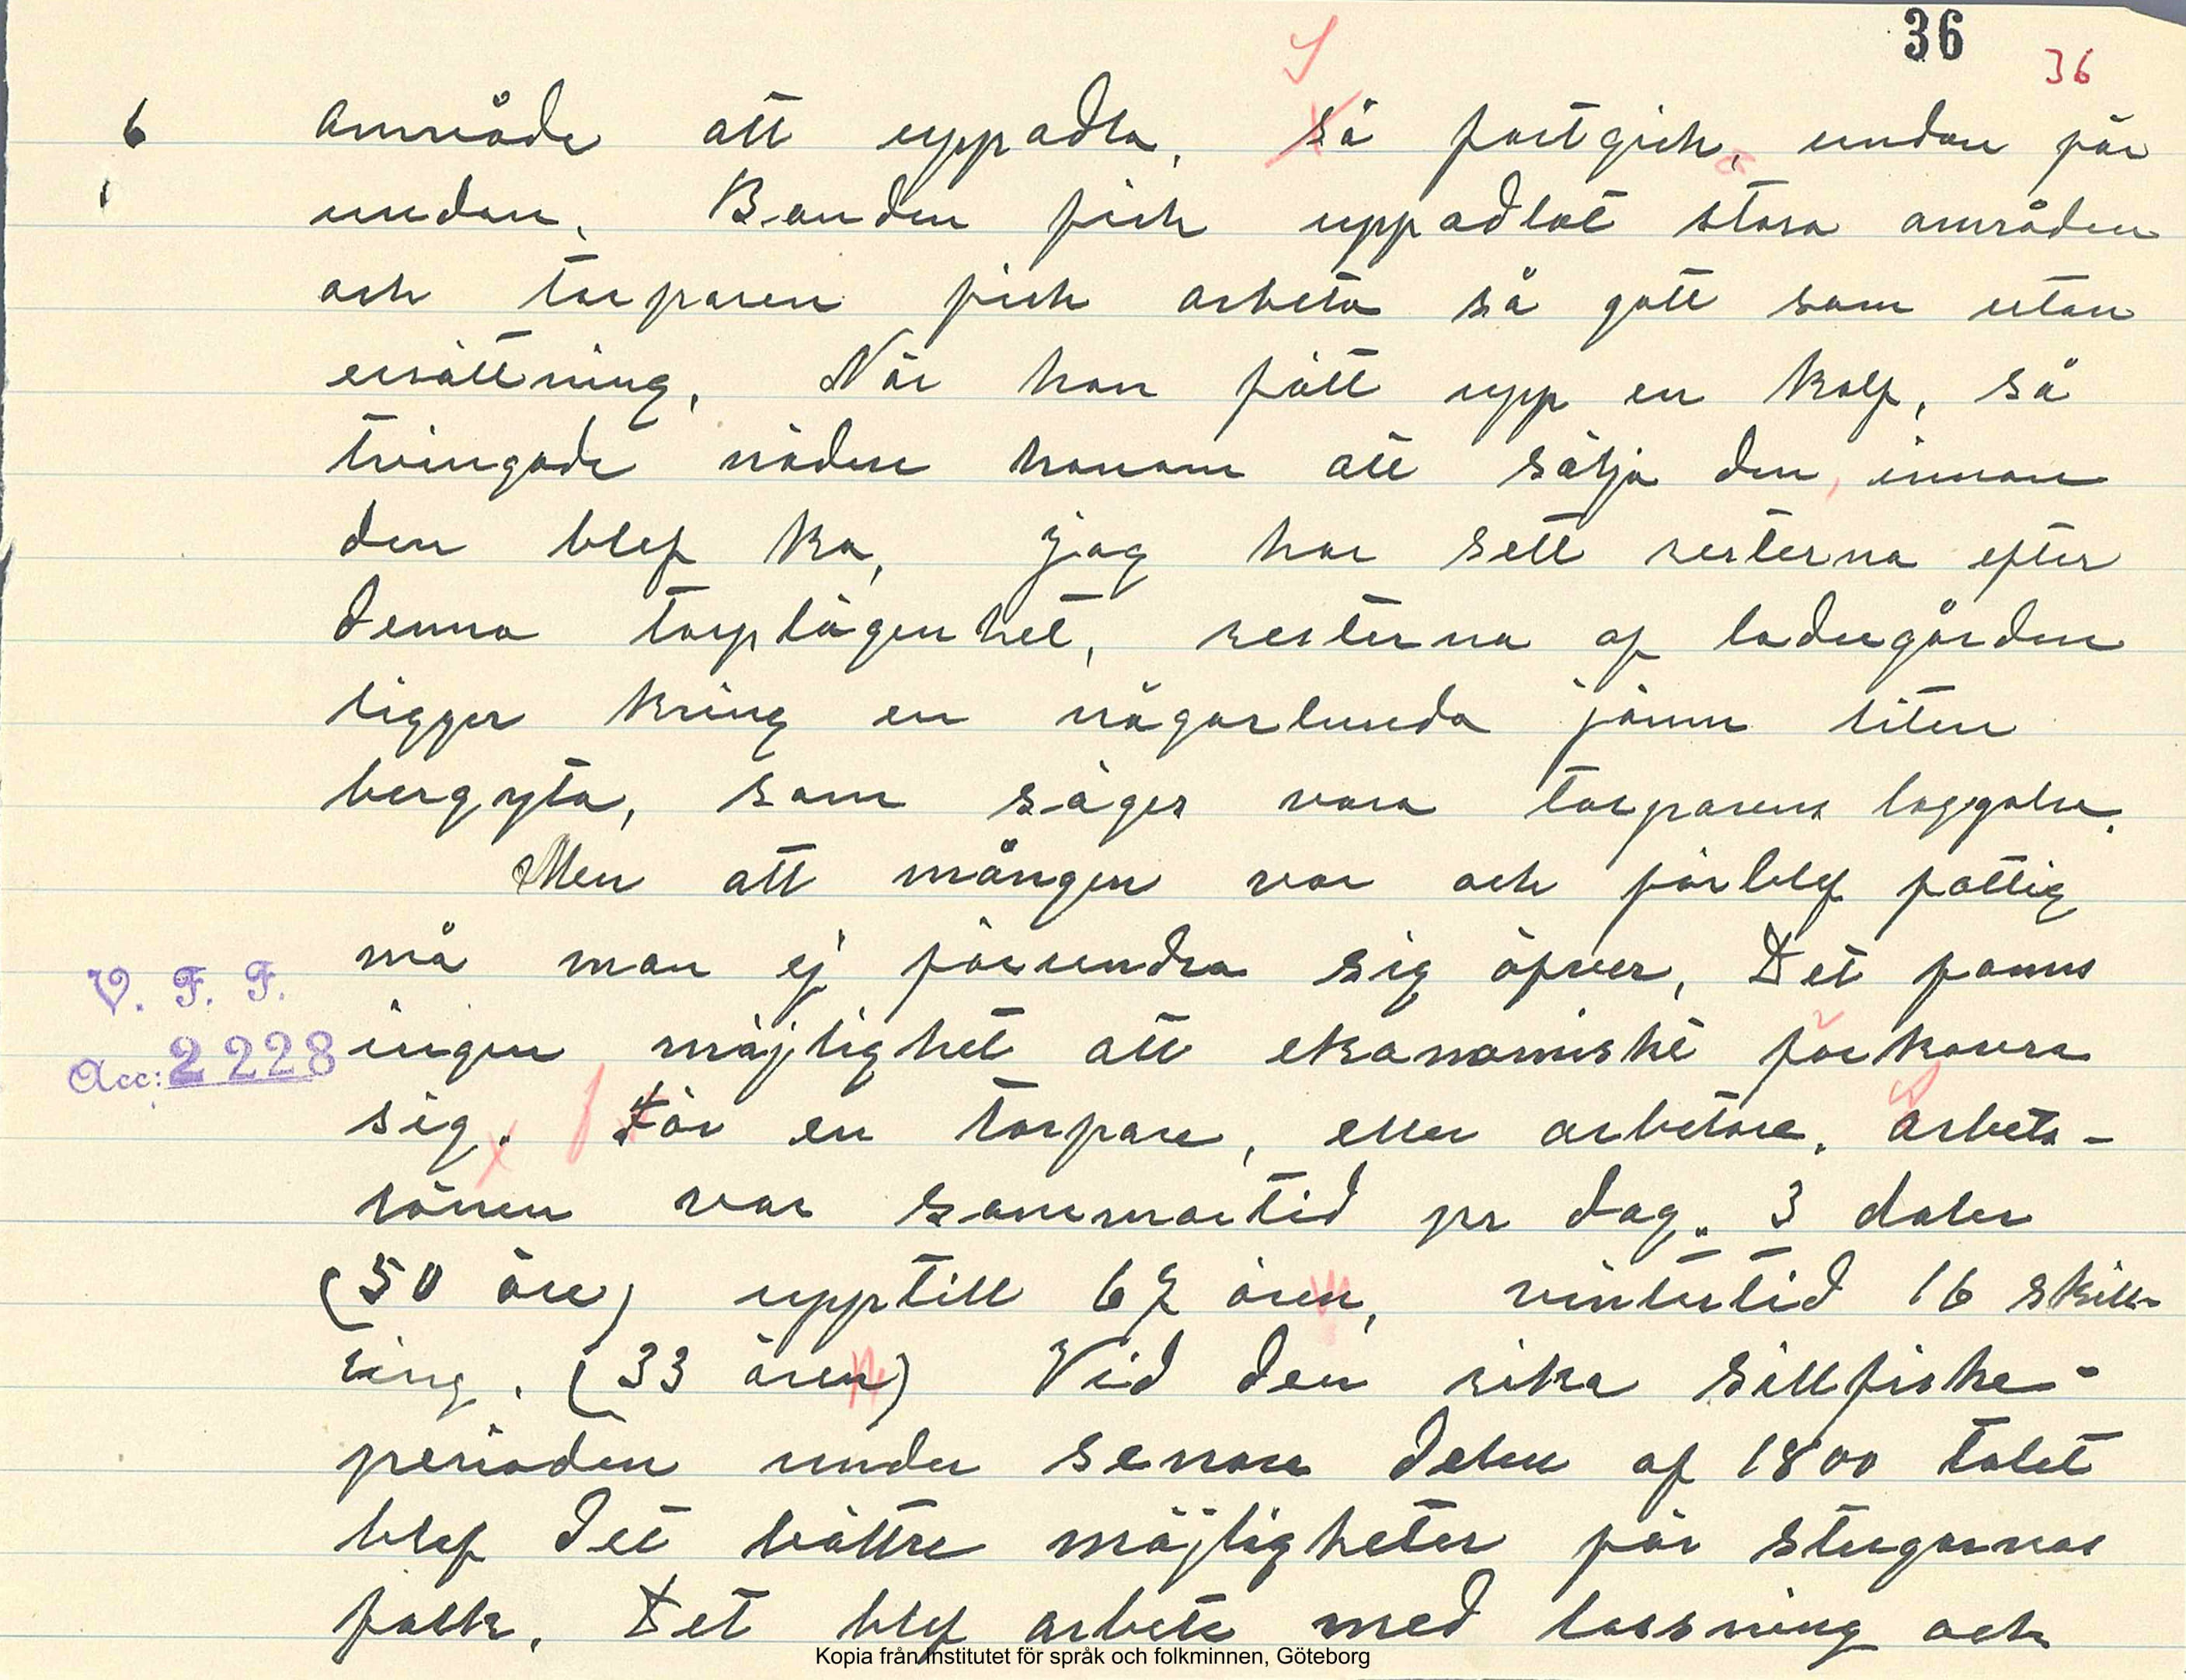 36
36
6 område att uppodla. Så fortgick, undan för
undan. Bonden fick uppodlat stora områden
och torparen fick arbeta så gott som utan
ersättning. När han fått upp en kalf, så
tvingade nöden honom att sälja den, innan
den blef ko, jag har sett resterna efter
denna torplägenhet, resterna af ladugården
ligger kring en någorlunda jämn liten
bergyta, som säges vara torparens loggolv.
Men att mången var och förblef fattig
må man ej förundra sig öfver, Det fanns
ingen möjlighet att ekonomiskt förkovra
sig. För en torpare, eller arbetare. arbets-
lönen var sommartid pr dag. 3 daler
(50 öre) upptill 67 ören, vintertid 16 skil-
ling. (33 ören) Vid den rika sillfiske-
perioden under senare delen af 1800 talet
blef det bättre möjligheter för stugornas
folk. Det blef arbete med lossning och
V. F. F.
Acc: 2228
Kopia från Institutet för språk och folkminnen, Göteborg